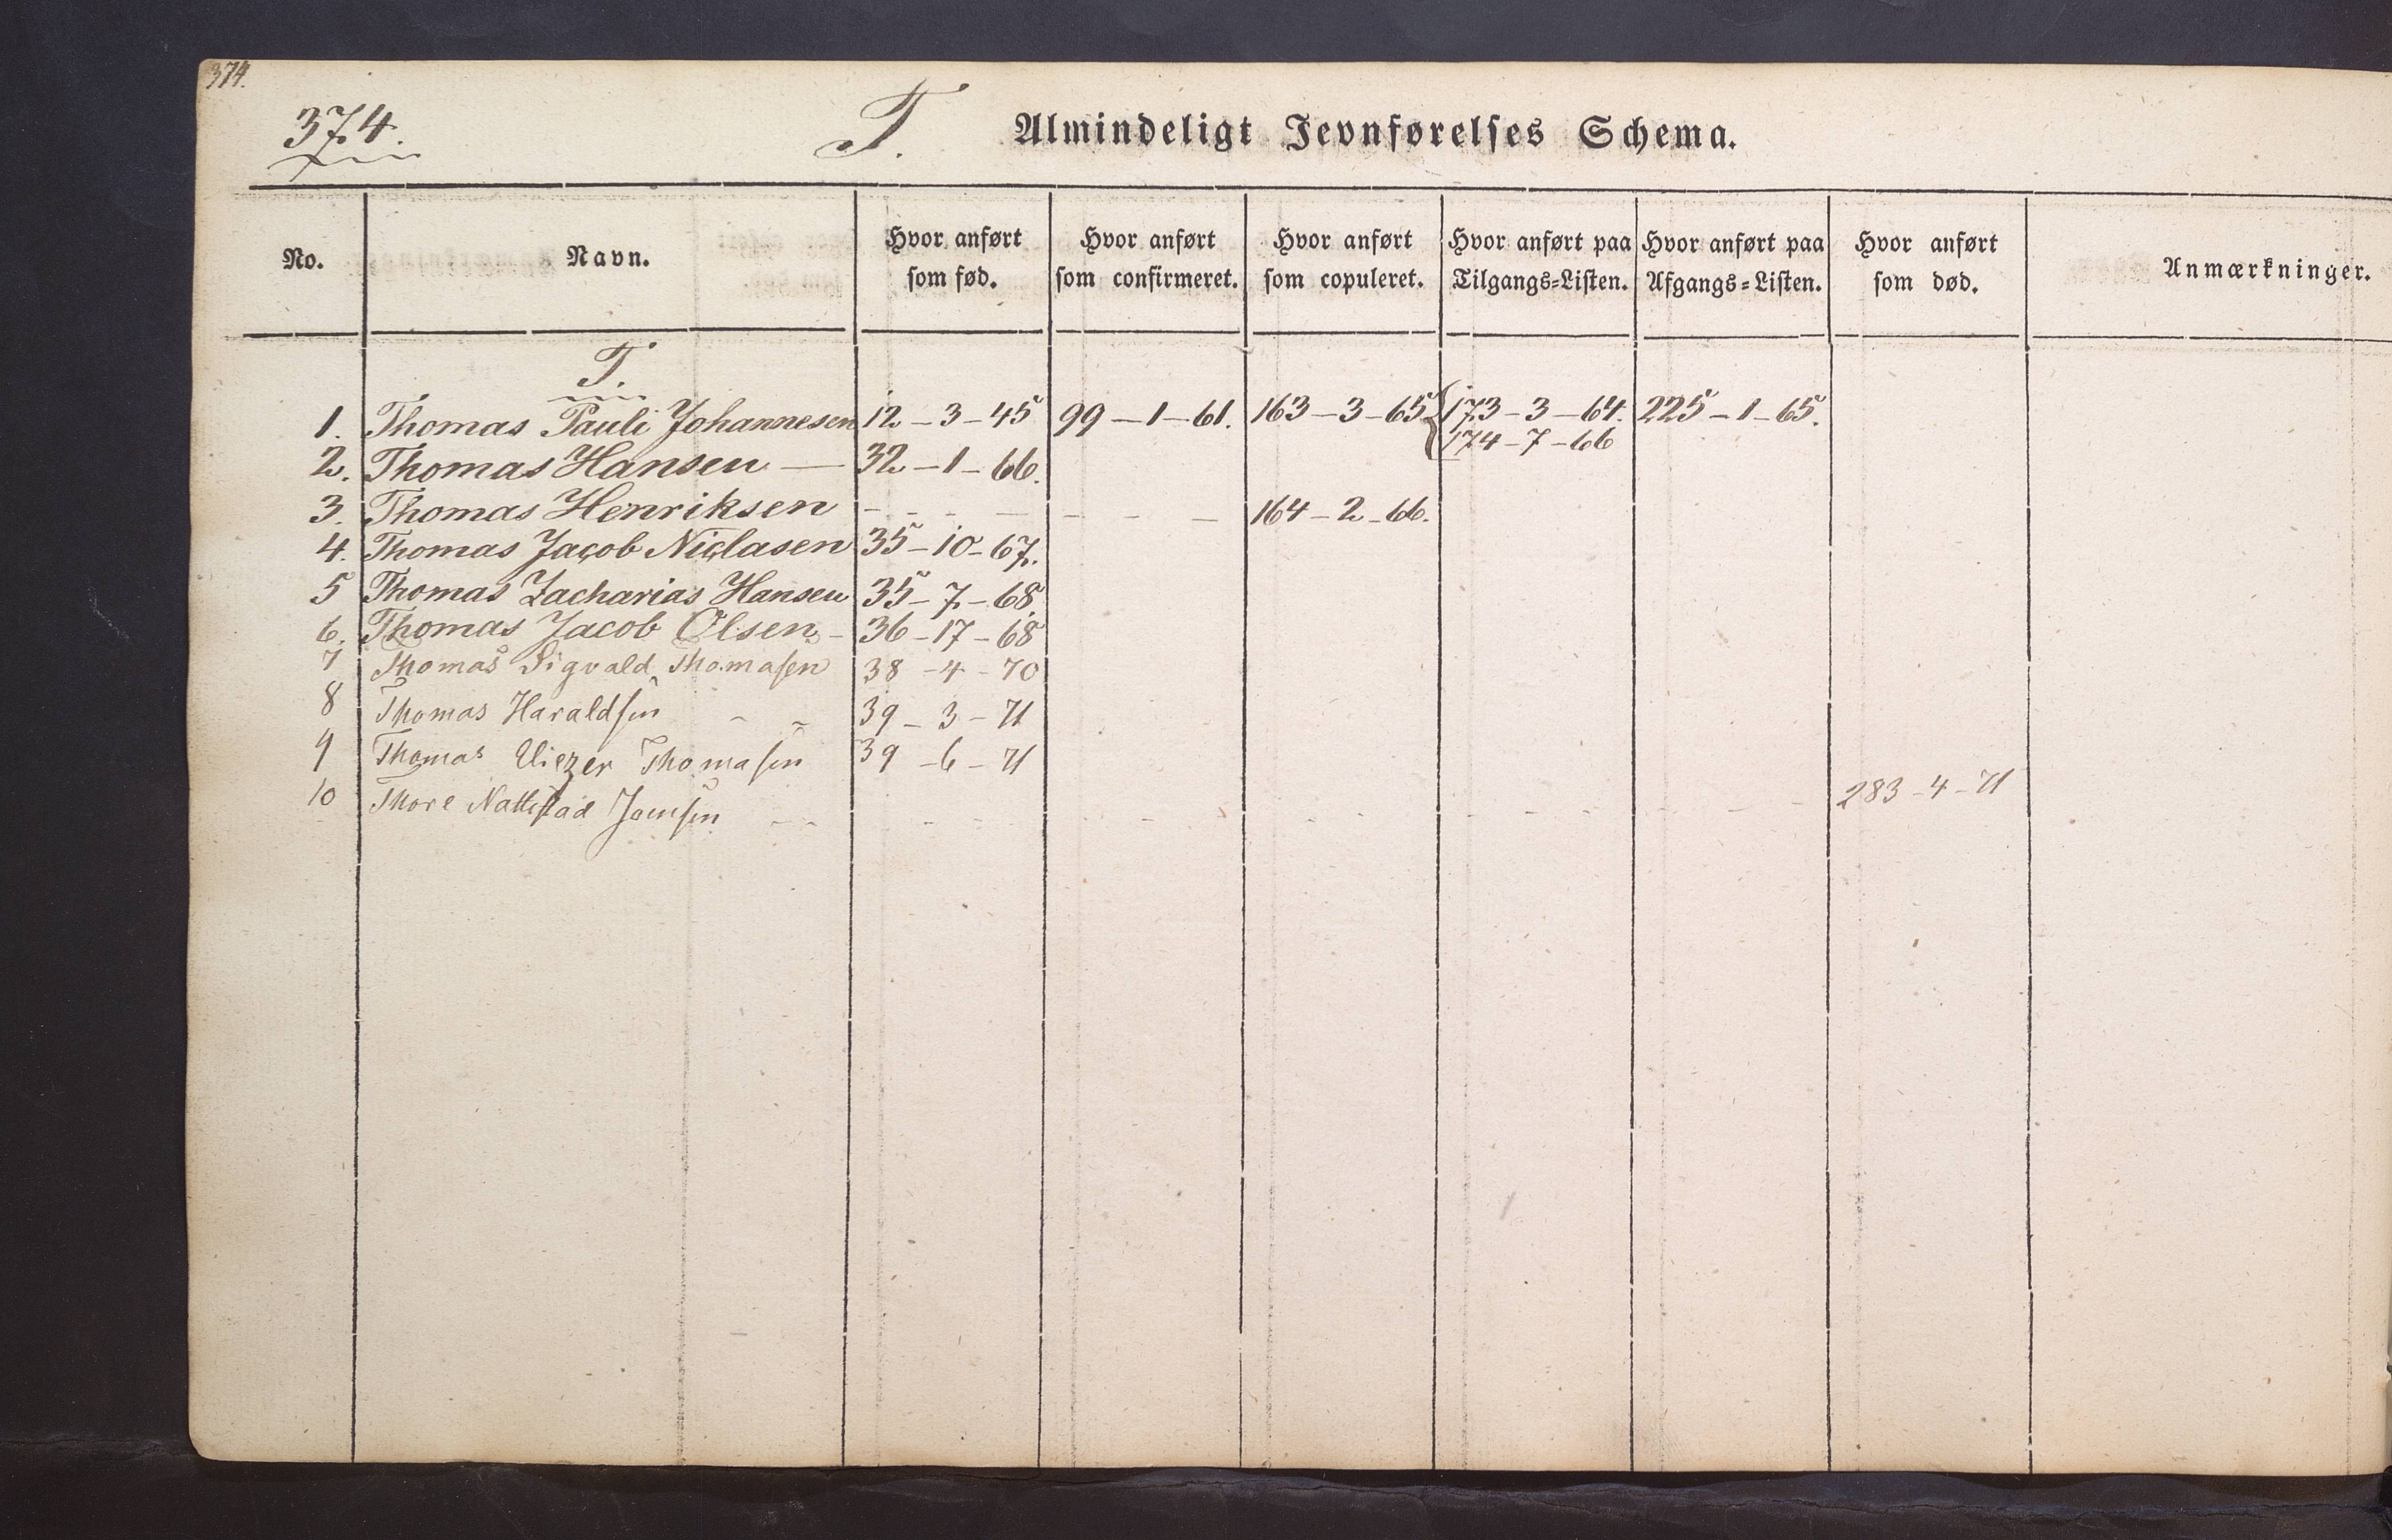 374.
374.
T. Almindeligt Jevnførelses Schema.
No. Navn. Hvor anført som fød. Hvor anført som confirmeret. Hvor anført som copuleret. Hvor anført paa Tilgangs=Listen. Hvor anført paa Afgangs=Listen. Hvor anført som død. Anmærkninger.
T.
1. Thomas Pauli Johannesen 12 - 3 - 45 99 - 1 - 61. 163 - 3 - 65 { 173 - 3 - 64. 225 - 1 - 65.
174 - 7 - 66
2. Thomas Hansen — 32 - 1 - 66.
3. Thomas Henriksen - - - — - - — 164 - 2 - 66.
4. Thomas Jacob Niclasen 35 - 10 - 67.
5 Thomas Zacharias Hansen 35 - 7 - 68
6. Thomas Jacob Olsen - 36 - 17 - 68
7 Thomas Sigvald Thomasen 38 - 4 - 70
8 Thomas Haraldsen - - 39 - 3 - 71
9 Thomas Thomasen 39 - 6 - 71
10 Thore Nattestad - - - - - - - - - - - - - 283 - 4 - 71